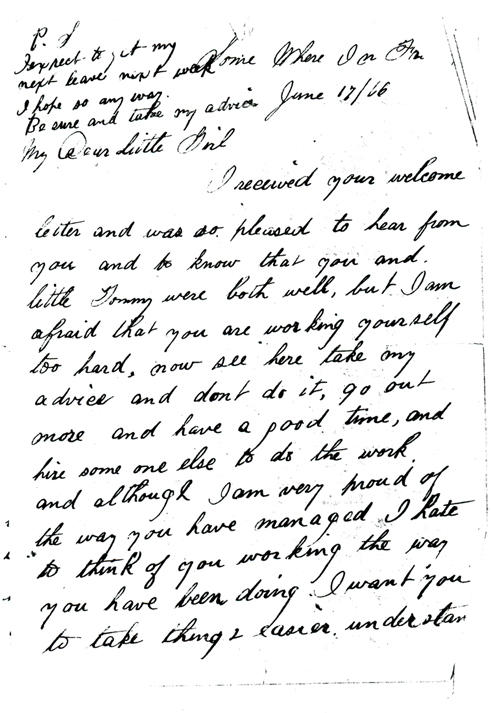 P. S
I expect to get my
next leave next week
I hope so any way.
Be sure and take my advice
Some Where In Fr
June 17/16
My Dear Little Girl
I received your welcome
letter and was so pleased to hear from
you and to know that you and
little Tommy were both well, but I am
afraid that you are working yourself
too hard, now see here take my
advice and dont do it, go out
more and have a good time, and
hire some one else to do the work
and although I am very proud of
the way you have managed I hate
to think of you working the way
you have been doing. I want you
to take things easier. understan